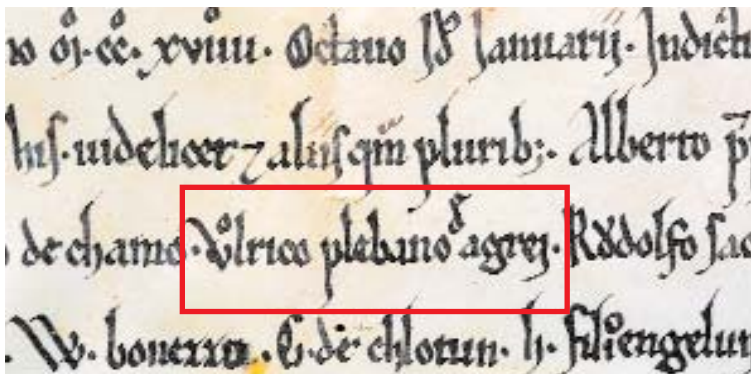 no m̊. c̊c̊. xviiii. Octauo Id' Ianuarij. Indicti
his. uidelicet ⁊ aliis qm̄ plurib;. Alberto
de chamo. Vͦlrico plebano agrej. Rvͦdolfo sac
. W. C. de chlotun. h. filiͦ